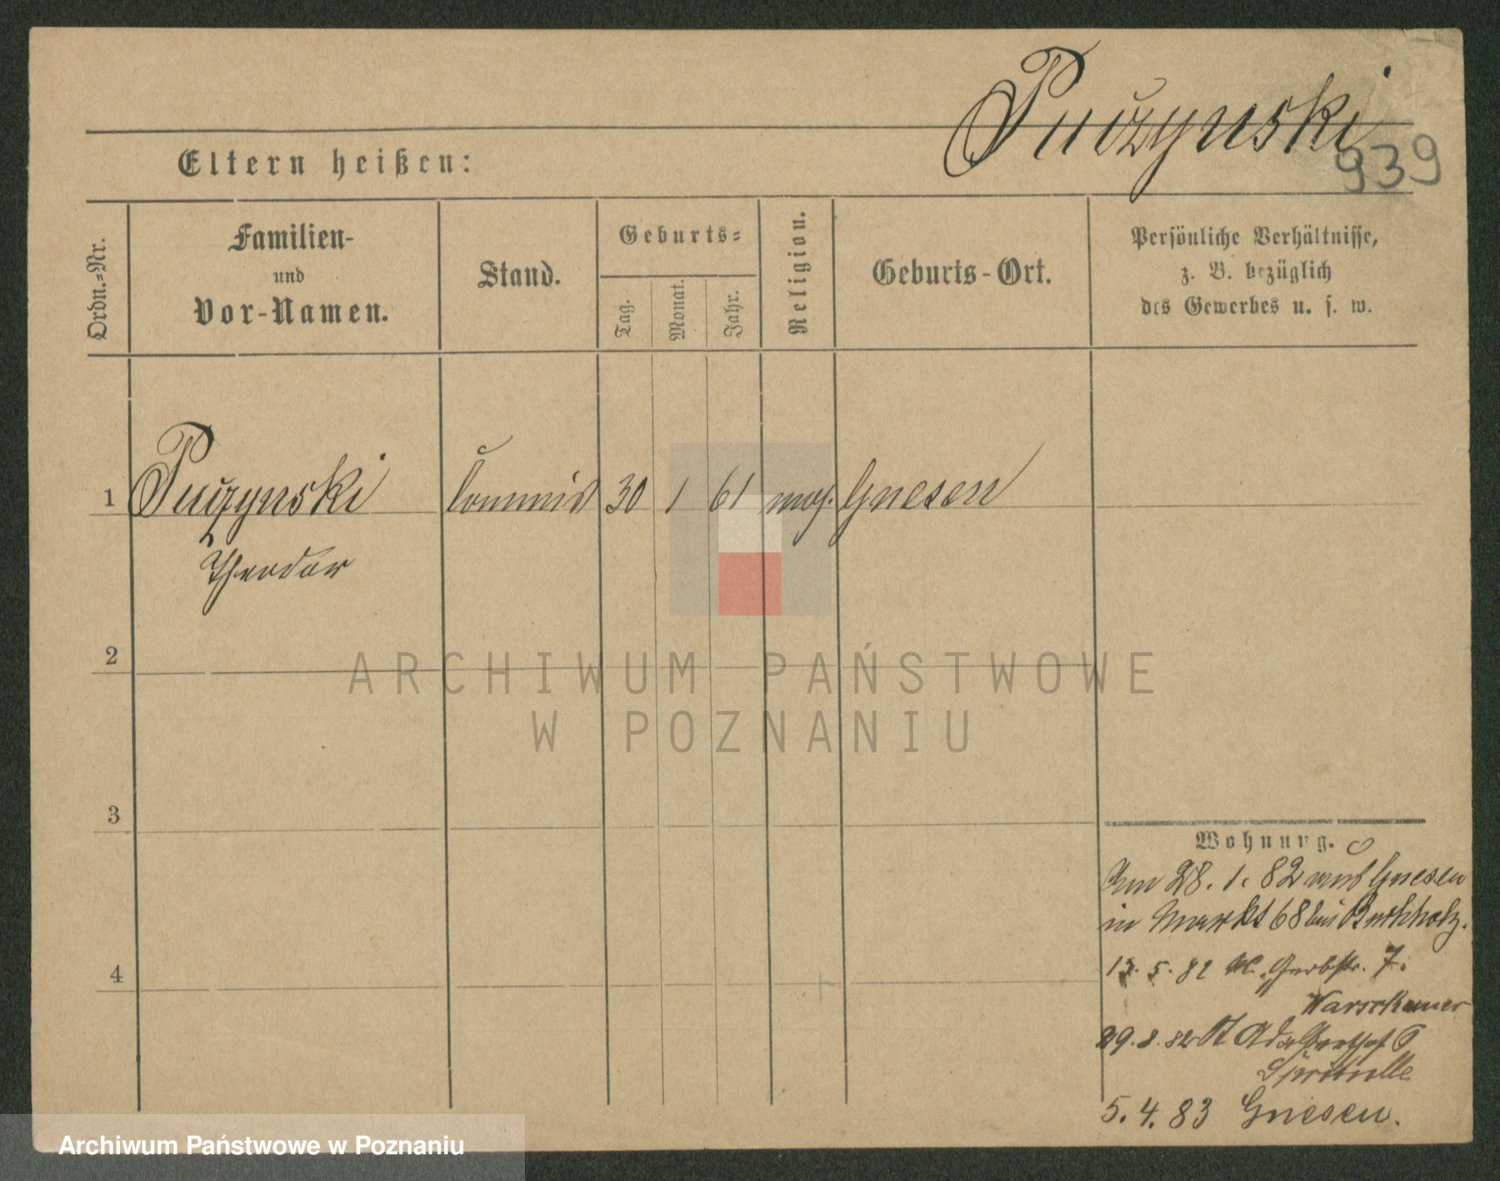 Pužynski
939
Eltern heißen:
Ordn.-Nr.
Familien-
und
Vor-Namen.
Stand.
Geburts-
Tag.
Monat.
Jahr.
Religion.
Geburts-Ort.
Persönliche Verhältnisse,
z. B. bezüglich
des Gewerbes u. s. w.
1 Commis 30 1 61 Gnesen
Theodor
2
3
4
Wohnung.
Am 28. 1. 82 aus Gnesen
in Markt 68 bei Buchholz.
5. 82 Gerbstr. 7.
Warschauer
29. 8. 82 St Adalbertstr 6
5. 4. 83 Gnesen.
ARCHIWUM PAŃSTWOWE
W POZNANIU
Archiwum Państwowe w Poznaniu